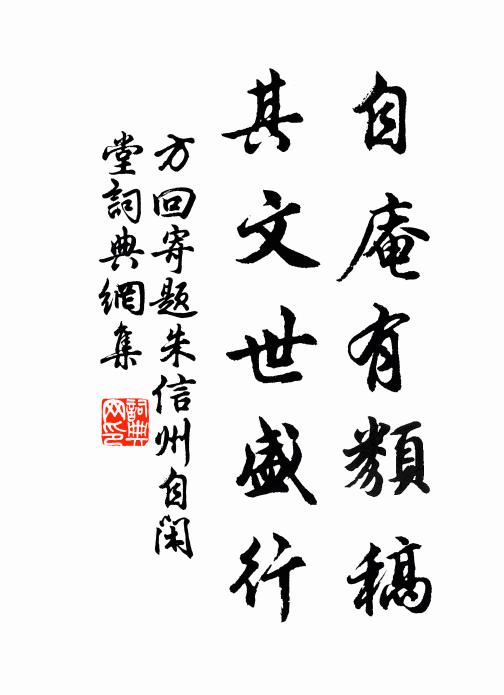 自庵有類稿
其文世盛行
方回寄題朱信州自閑
堂詞典網集
詞典
网印